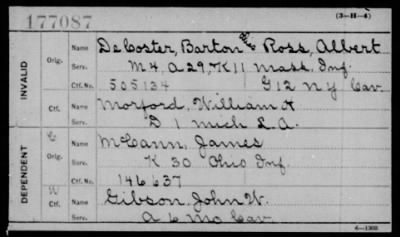 177087
(3-H-4)
INVALID
Orig. Name DeCoster, Barton & Ross, Albert
Serv. M 4, A 29, K 11 Mass. Inf.
Ctf. No. 505134 G 12 N Y Cav
Ctf. Name Morford, William H
Serv. D 1 Mich L. A.
DEPENDENT
Orig. Name McCann, James
Serv. K 30 Ohio Inf.
Ctf. No. 146637
Ctf. Name Gibson, John W.
Serv. A 6 Mo Cav